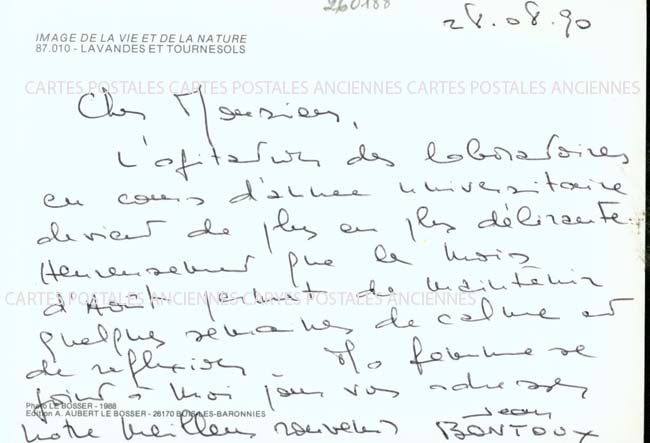 260188
28.08.90
IMAGE DE LA VIE ET DE LA NATURE
87.010 - LAVANDES ET TOURNESOLS
CARTES POSTALES ANCIENNES CARTES POSTALES ANCIENNES
Cher Monsieur,
L'agitation des laboratoires
en cours d'année universitaire
devient de plus en plus délirante.
Heureusement que le mois
d'Août permet de maintenir
CARTES POSTALES ANCIENNES CARTES POSTALES ANCIENNES
quelques semaines de calme et
de réflexion. Ma femme se
joint à moi pour vous adresser
Photo LE BOSSER - 1988
Edition A. AUBERT LE BOSSER - 26170 BUIS-LES-BARONNIES
notre meilleur souvenir Jean
BONTOUX